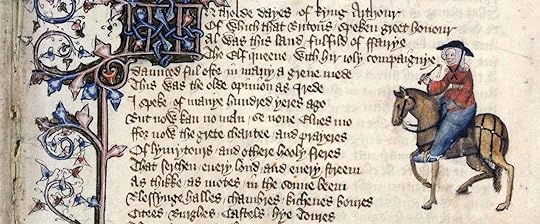 IN tholde dayes of Kyng Arthour
Of which that Britons speken greet honour
Al was this land fulfild of ffairye
The Elf queene with hir ioly compaignye
Daunced ful ofte in many a grene mede
This was the olde opinion as I rede
I speke of manye hundred yeres ago
But now kan no man se none Elues mo
ffor now the grete charitee and prayeres
Of lymytours and othere hooly freres
That serchen euery lond and euery streem
As thikke as motes in the sonne beem
Blessynge halles chambres kichenes boures
Citees Burghes Castels hye Toures